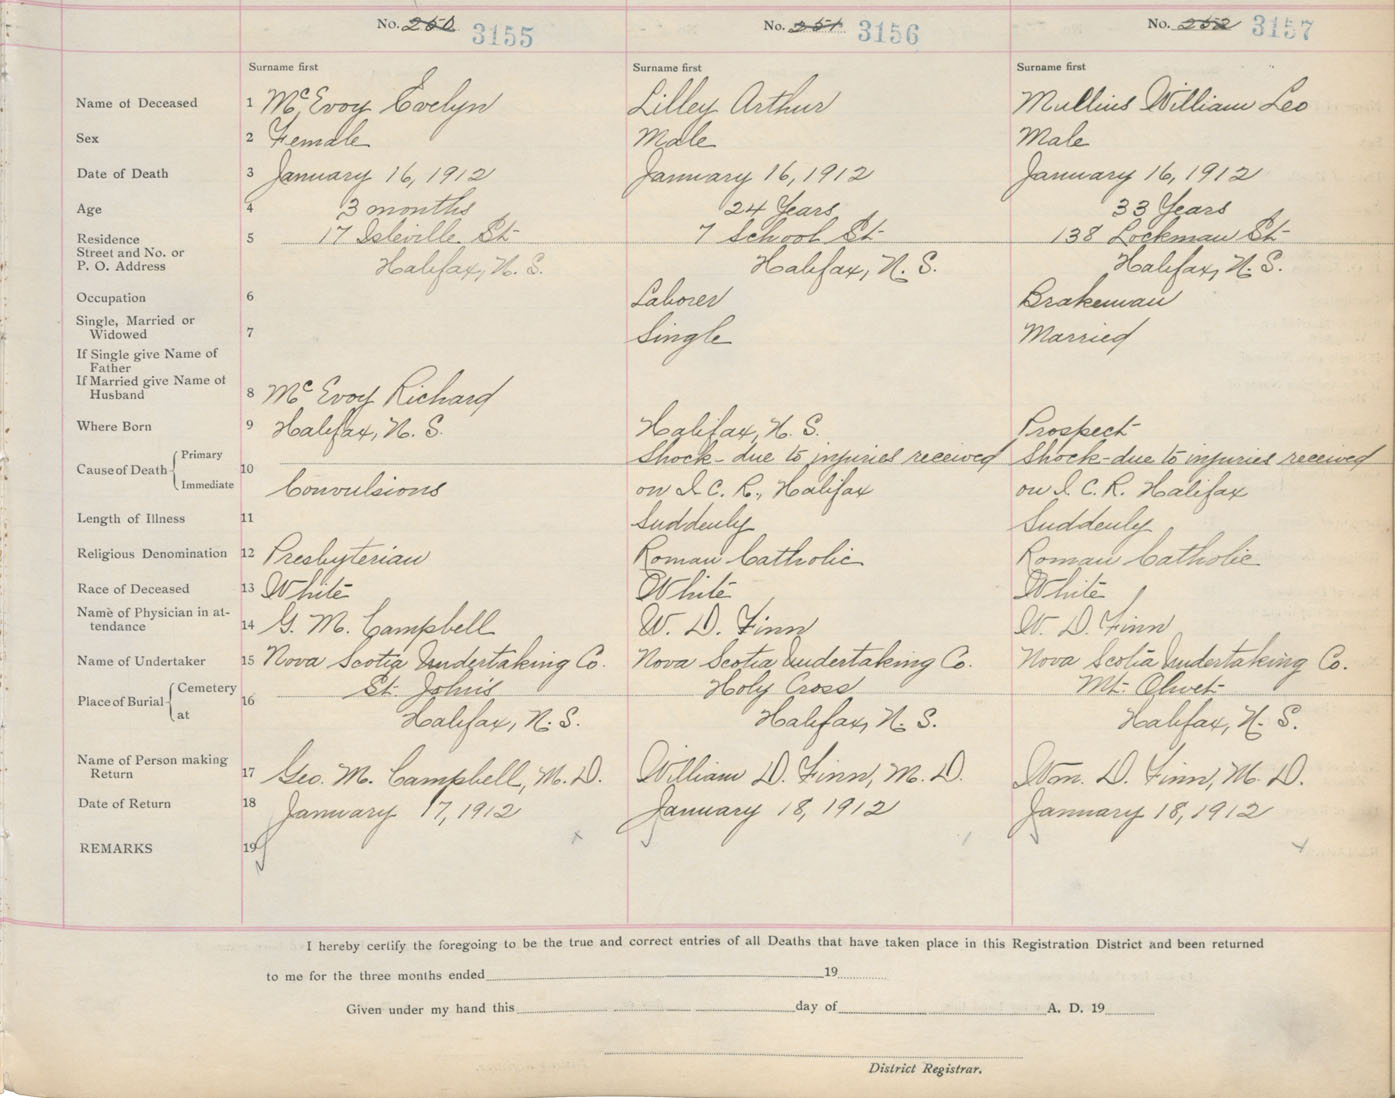 No. 250 3155 No. 251 3156 No. 252 3157
Surname first Surname first Surname first
Name of Deceased 1 McEvoy Evelyn Lilley Arthur Mullins William Leo
Sex 2 Female Male Male
Date of Death 3 January 16, 1912 January 16, 1912 January 16, 1912
Age 4 3 months 24 Years 33 Years
Residence 5 17 Isleville St 7 School St 138 Lockman St
Street and No. or
P. O. Address Halifax, N. S. Halifax, N. S. Halifax, N. S.
Occupation 6 Laborer Brakeman
Single, Married or
Widowed 7 Single Married
If Single give Name of
Father
If Married give Name of
Husband 8 McEvoy Richard
Where Born 9 Halifax, N. S. Halifax, N. S. Prospect
Cause of Death Primary 10 Shock - due to injuries received Shock - due to injuries received
Immediate Convulsions on I. C. R., Halifax on I. C. R. Halifax
Length of Illness 11 Suddenly Suddenly
Religious Denomination 12 Presbyterian Roman Catholic Roman Catholic
Race of Deceased 13 White White White
Name of Physician in at-
tendance 14 G. M. Campbell W. D. Finn W. D. Finn
Name of Undertaker 15 Nova Scotia Undertaking Co. Nova Scotia Undertaking Co. Nova Scotia Undertaking Co.
Place of Burial Cemetery 16 St. John's Holy Cross Mt. Olivet
at Halifax, N. S. Halifax, N. S. Halifax, N. S.
Name of Person making
Return 17 Geo. M. Campbell, M. D. William D. Finn, M. D. Wm. D. Finn, M. D.
Date of Return 18 January 17, 1912 January 18, 1912 January 18, 1912
REMARKS 19
I hereby certify the foregoing to be the true and correct entries of all Deaths that have taken place in this Registration District and been returned
to me for the three months ended 19
Given under my hand this day of A. D. 19
District Registrar.